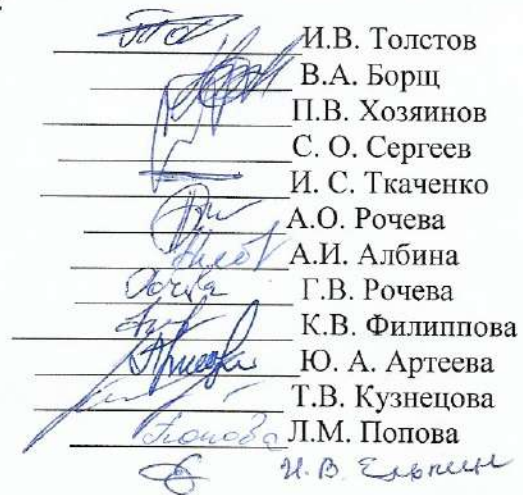 И.В. Толстов
В.А. Борщ
П.В. Хозяинов
С. О. Сергеев
И. С. Ткаченко
А.О. Рочева
А.И. Албина
Г.В. Рочева
К.В. Филиппова
Ю. А. Артеева
Т.В. Кузнецова
Попова Л.М. Попова
И. В.